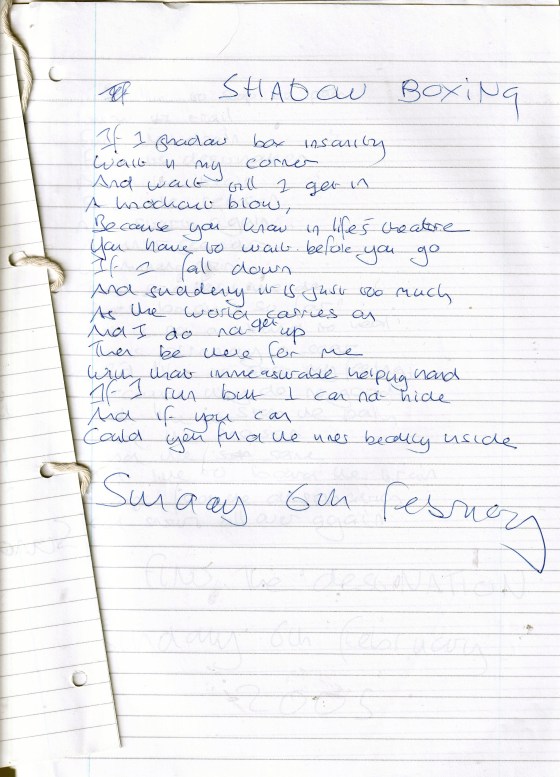 SHADOW BOXING
If I shadow box insanity
Wait in my corner
And wait till I get in
A knockout blow,
Because you know in life's theatre
You have to wait before you go
If I fall down
And suddenly it is just too much
As the world carries on
And I do not get up
Then be there for me
With that immeasurable helping hand
If I run but I can not hide
And if you can
Could you find the beauty inside
Sunday 6th February
find the destINATION
day 6th February
2005